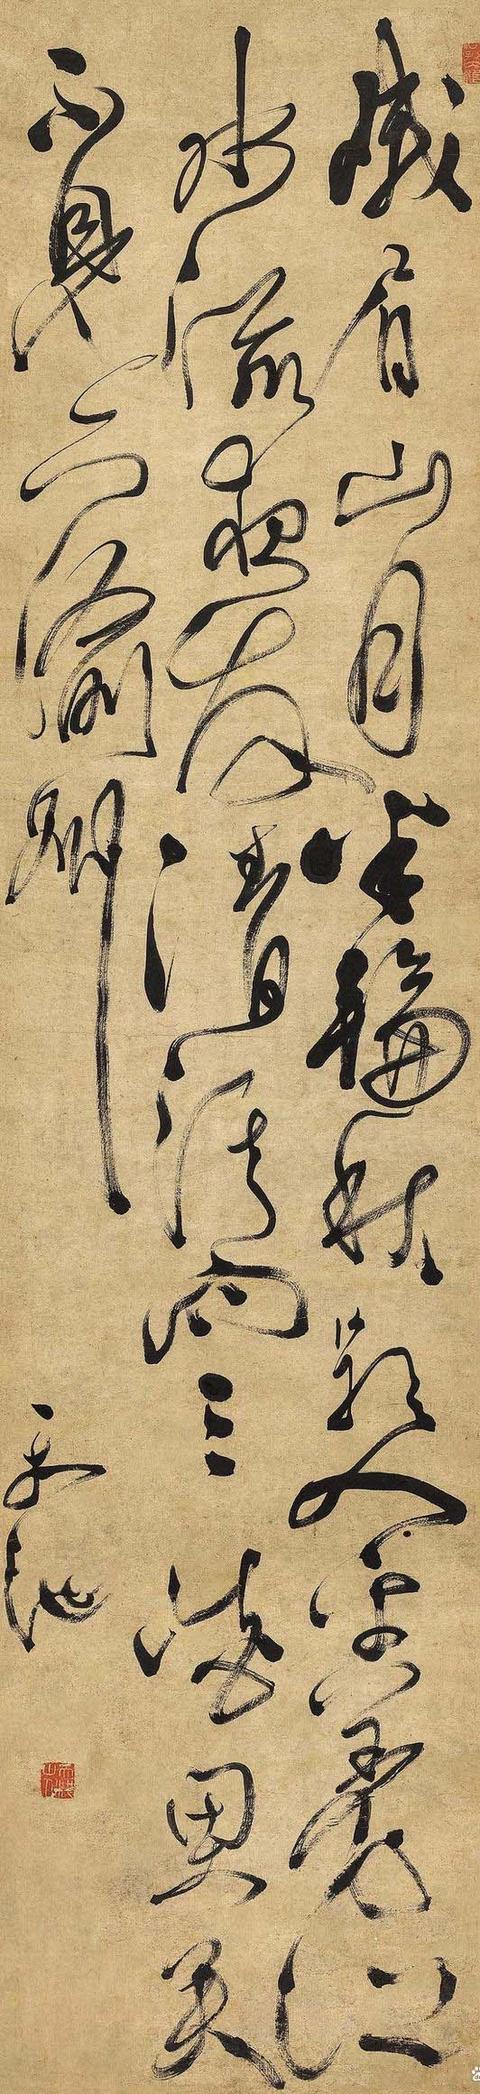 峨眉山月半輪秋影入平羌江
水流夜發清溪向三峽思君
不見下渝州